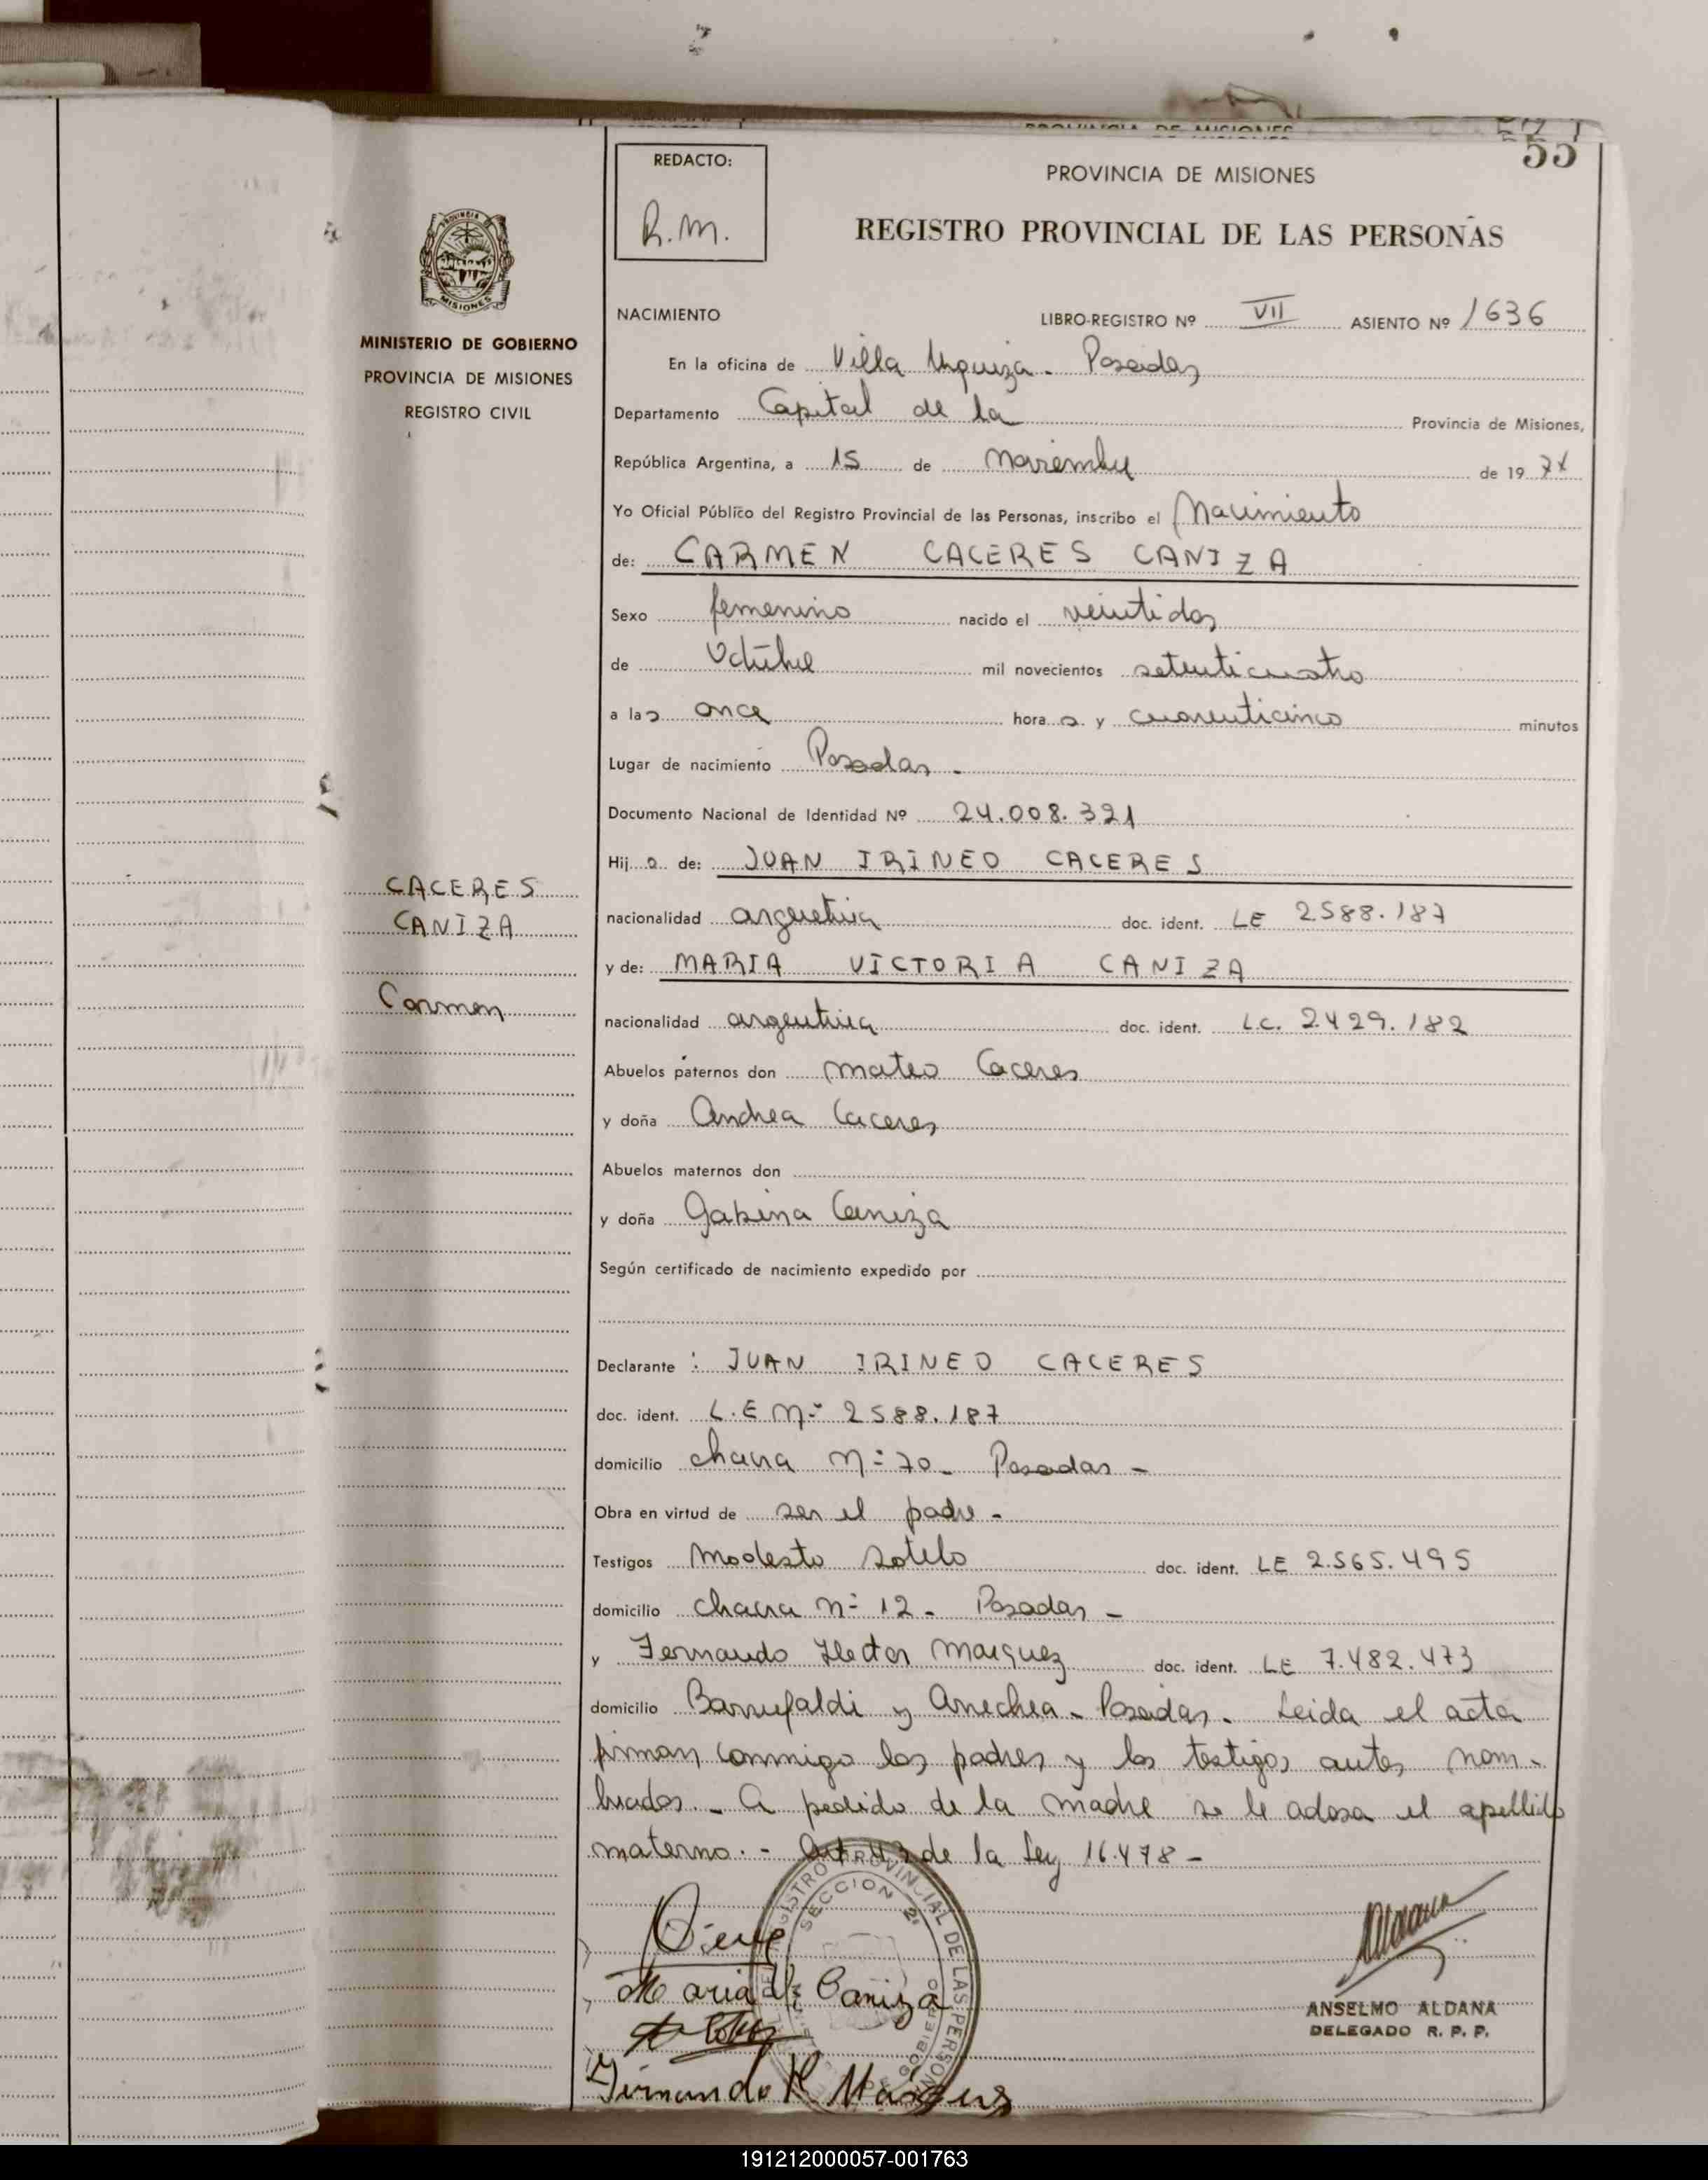 PROVINCIA DE MISIONES
55
REDACTO:
R.M.
PROVINCIA DE MISIONES
REGISTRO PROVINCIAL DE LAS PERSONAS
MISIONES
MINISTERIO DE GOBIERNO
PROVINCIA DE MISIONES
REGISTRO CIVIL
NACIMIENTO LIBRO-REGISTRO Nº VII ASIENTO Nº 1636
En la oficina de Villa Urquiza - Posadas
Departamento Capital de la Provincia de Misiones,
República Argentina, a 15 de Noviembre de 1974
Yo Oficial Público del Registro Provincial de las Personas, inscribo el Nacimiento
de: CARMEN CACERES CANIZA
Sexo femenino nacido el veintidos
de Octubre mil novecientos setenticuatro
a las once horas y cuarenticinco minutos
Lugar de nacimiento Posadas -
Documento Nacional de Identidad Nº 24.008.321
Hija de: JUAN IRINEO CACERES
CACERES
CANIZA
Carmen
nacionalidad argentina doc. ident. LE 2588.187
y de: MARIA VICTORIA CANIZA
nacionalidad argentina doc. ident. L.C. 2429.182
Abuelos paternos don Mateo Caceres
y doña Andrea Caceres
Abuelos maternos don
y doña Gabina Caniza
Según certificado de nacimiento expedido por
Declarante : JUAN IRINEO CACERES
doc. ident. L.E Nº 2588.187
domicilio chacra Nº 70 - Posadas -
Obra en virtud de ser el padre -
Testigos Modesto Sotelo doc. ident. LE 2.565.495
domicilio chacra Nº 12 - Posadas -
y Fernando Hector Marquez doc. ident. LE 7.482.473
domicilio Barrufaldi y Anechea - Posadas. Leida el acta
firman conmigo los padres y los testigos antes nom-
brados. - A pedido de la madre se le adosa el apellido
materno. - Art 43 de la Ley 16.478 -
REGISTRO PROVINCIAL DE LAS PERSONAS
SECCION 2ª
Maria V. Caniza
Fernando H Marquez
ANSELMO ALDANA
DELEGADO R. P. P.
191212000057-001763